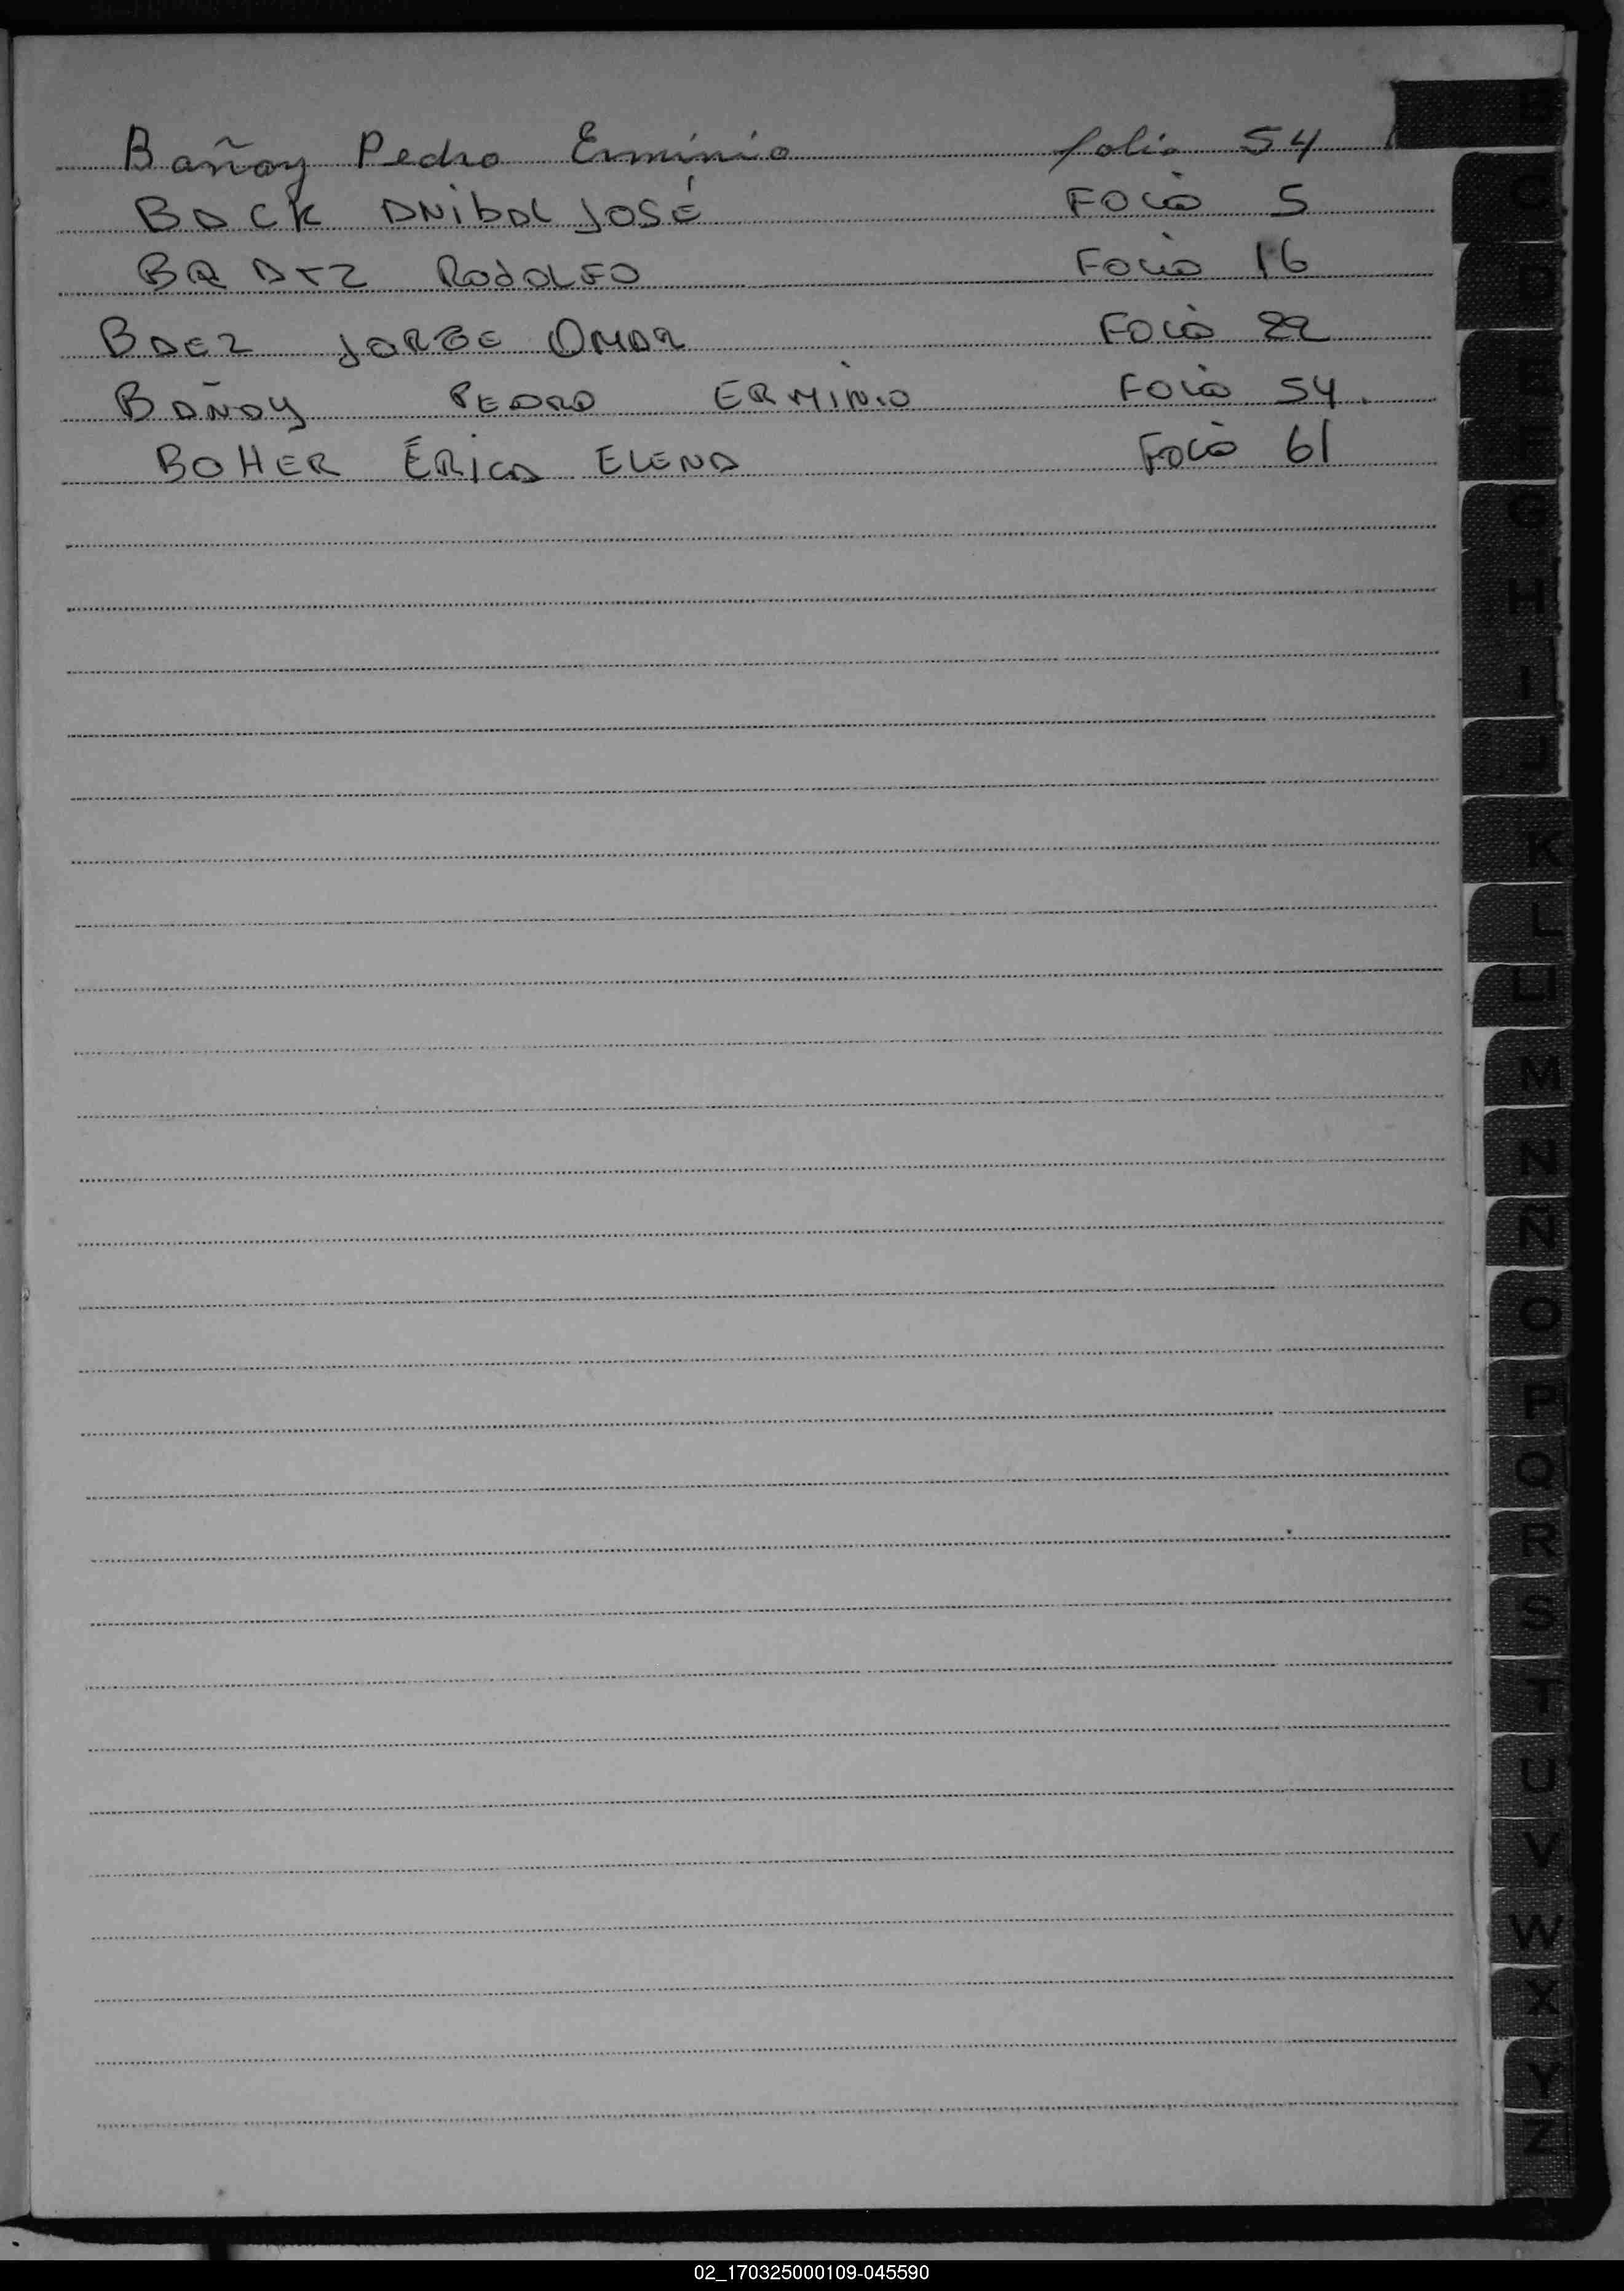 Bañay Pedro Erminio folio 54
BACK ANIBAL JOSÉ FOLIO 5
RODOLFO FOLIO 16
BAEZ JORGE OMAR FOLIO 22
BAÑAY PEDRO ERMINIO FOLIO 54.
BOHER ÉRICA ELENA FOLIO 61
G
H
I
J
K
L
LL
M
N
Ñ
O
P
Q
R
S
T
U
V
W
X
Y
Z
02_170325000109-045590